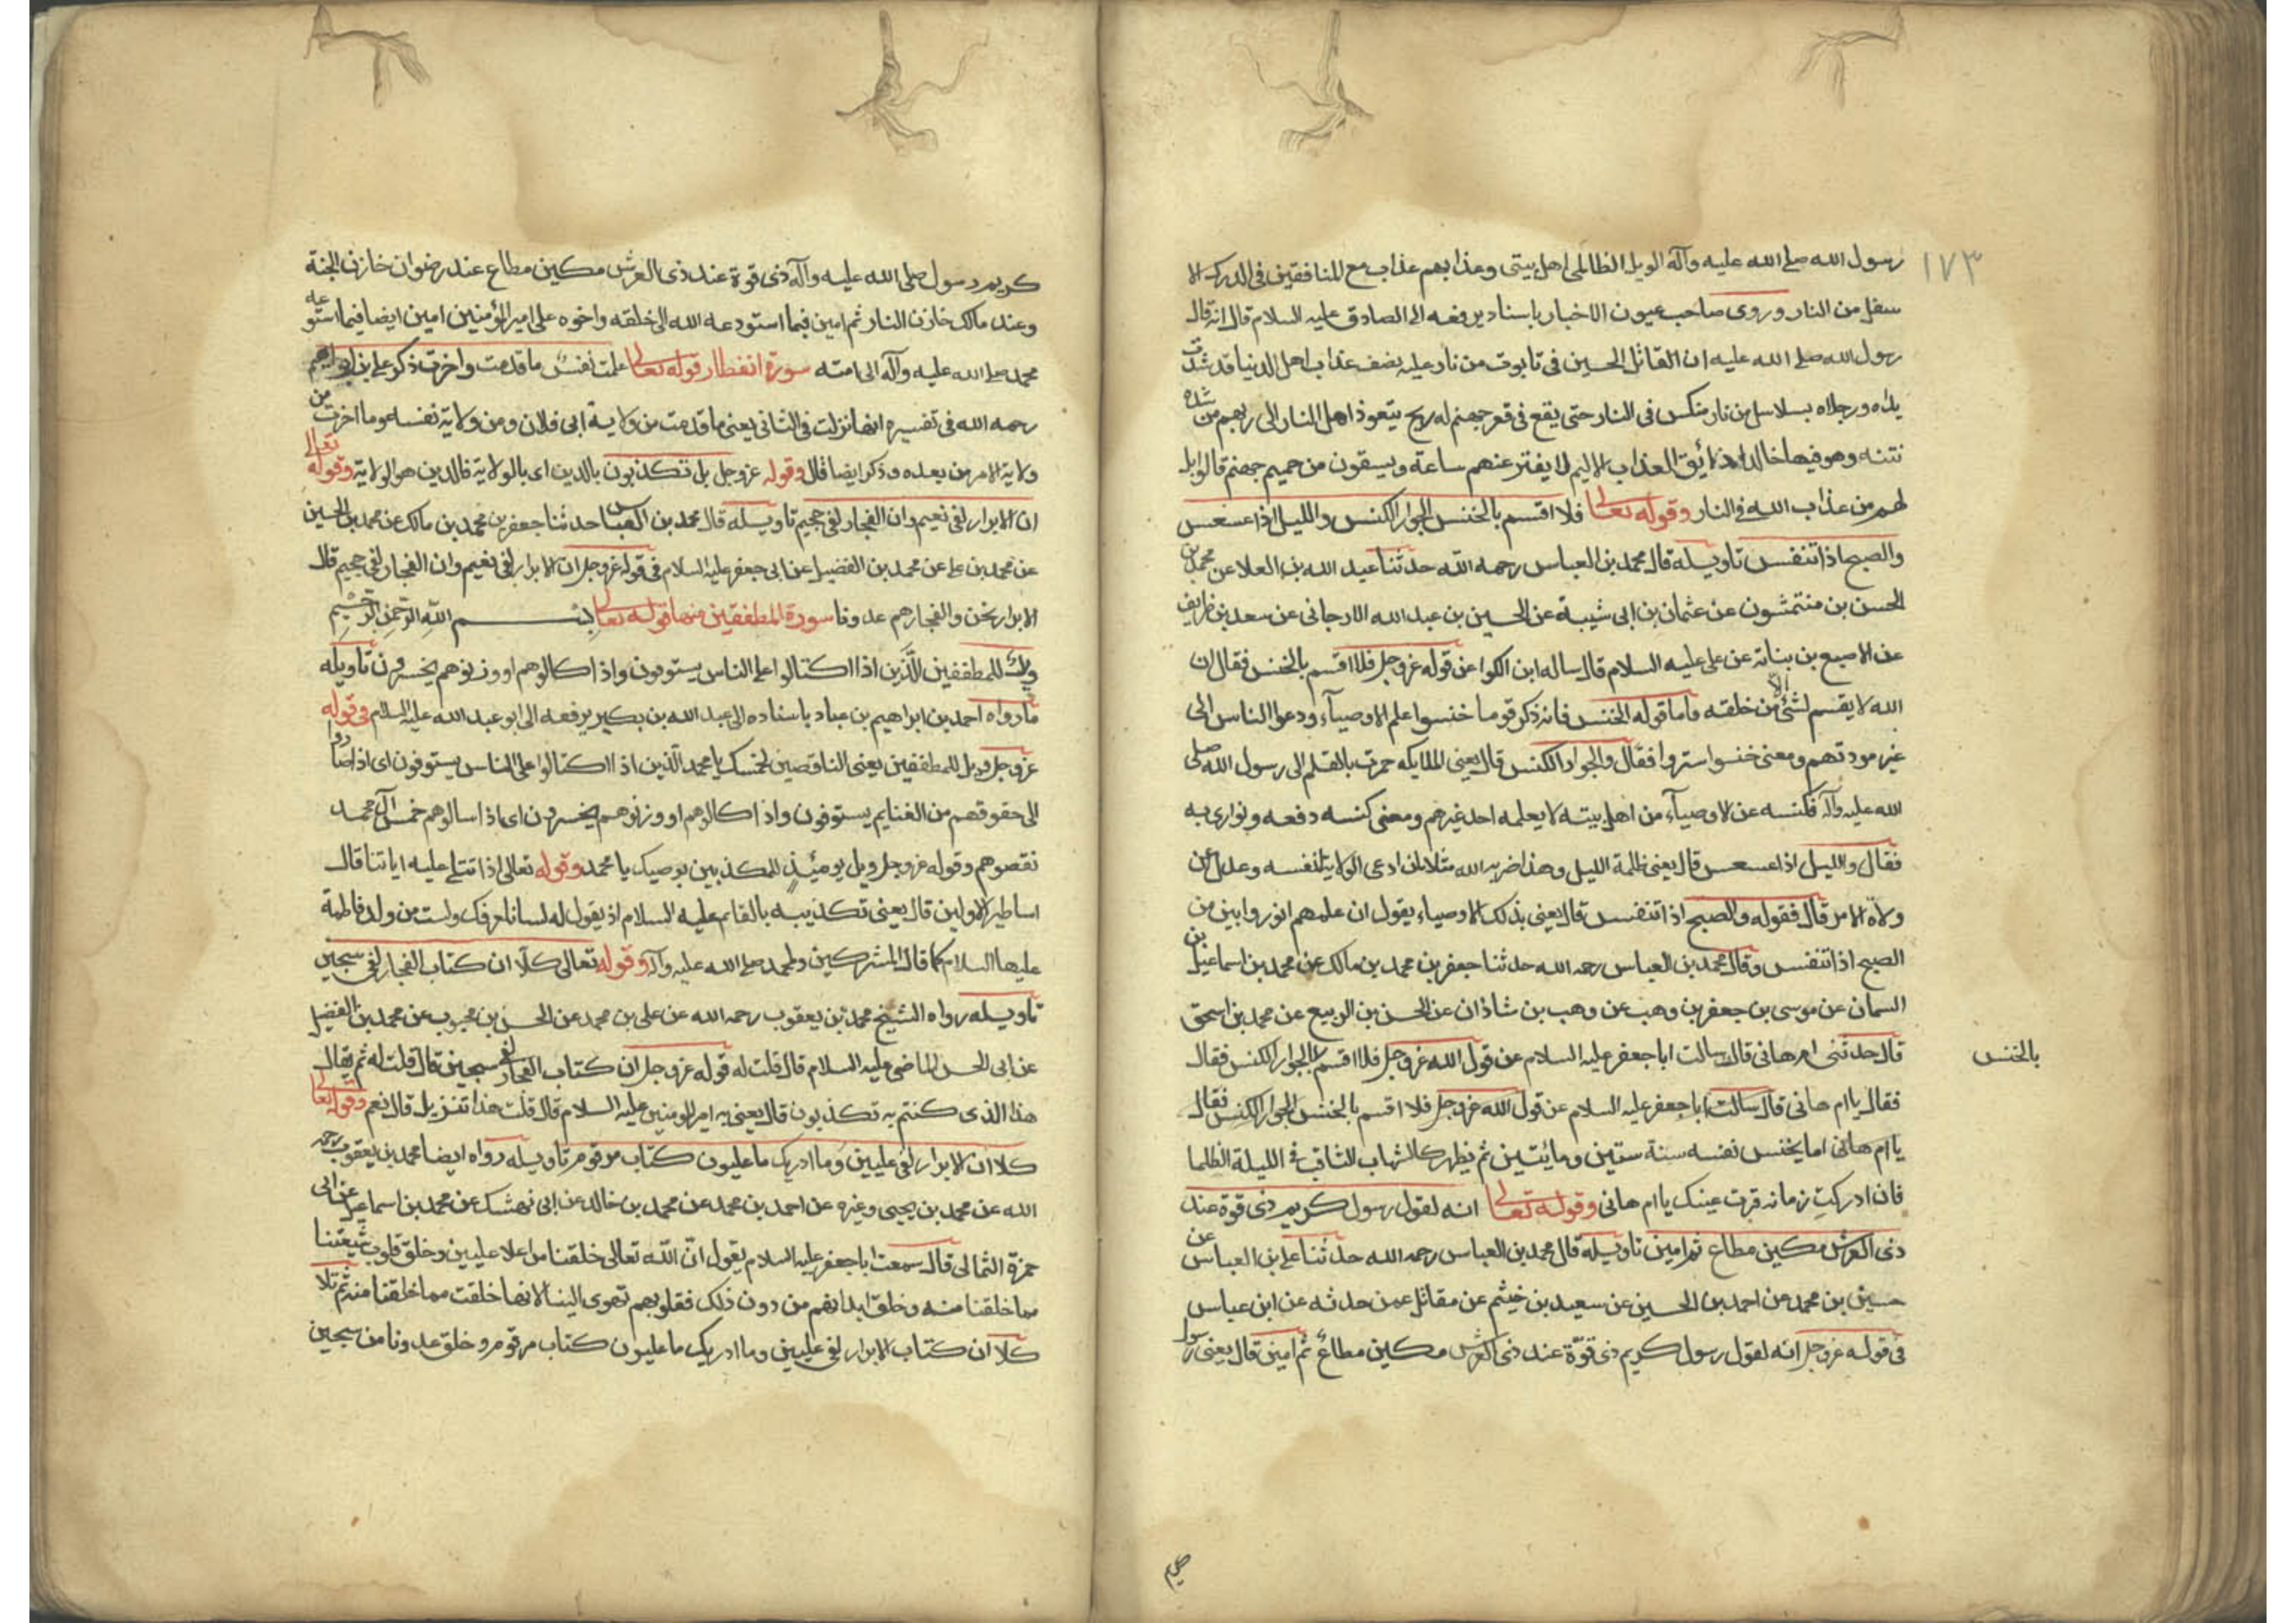 ١٧٣
رسول الله صلے الله عليه وآله الويل الظالمى اهل بيتى وعذابهم عذاب مع للمنافقين فى الدرك الا
سفل من النار وروى صاحب عيون الاخبار باسناد يرفعه الى الصادق عليه السلام قال انه قال
رسول الله صلے الله عليه ان القاتل الحسين فى تابوت من نار عليه نصف عذاب اهل الدنيا قد شدت
يداه ورجلاه بسلاسل من نار منكس فى النار حتى يقع فى قعر جهنم له ريح يتعوذ اهل النار الى ربهم من شدة
نتنه وهو فيها خالدا ذائق العذاب الاليم لا يفتر عنهم ساعة ويسقون من حميم جهنم قالويل
لهم من عذاب الله فى النار وقوله تعالى فلا اقسم بالخنس الجوار الكنس والليل اذا عسعس
والصبح اذا تنفس تاويله قال محمد بن العباس رحمه الله حدثنا عبد الله بن العلا عن محمد بن
الحسن بن منتمشون عن عثمان بن ابى شيبة عن الحسين بن عبد الله الارجانى عن سعد بن طريف
عن الاصبع بن بناتة عن على عليه السلام قال ساله ابن الكوا عن قوله عز وجل فلا اقسم بالخنس فقال ان
الله لا يقسم لشئ من خلقه الا واما قوله الخنس فانه ذكر قوما خنسوا علم الاوصياء ودعوا الناس الى
غير مودتهم ومعنى خنسوا ستروا فقال والجوار الكنس قال يعنى الملايكه جرت بالقلم الى رسول الله صلى
الله عليه وآله فكنسه عن لاوصياء من اهل بيته لا يعلمه احد غيرهم ومعنى كنسه دفعه وتوارى به
فقال والليل اذا عسعس قال يعنى ظلمة الليل وهذا ضربه الله مثلا لمن ادعى الولاية لنفسه وعدل عن
ولاة الامر قال فقوله والصبح اذا تنفس قال يعنى بذلك الاوصياء يقول ان علمهم انور وابين من
الصبح اذا تنفس وقال محمد بن العباس رحمه الله حدثنا جعفر بن محمد بن مالك عن محمد بن اسماعيل بن
السمان عن موسى بن جعفر بن وهب عن وهب بن شاذان عن الحسن بن الربيع عن محمد بن اسحق
قال حدثتنى ام هانى قال سالت ابا جعفر عليه السلام عن قول الله عز وجل فلا اقسم بالجوار الكنس فقال
بالخنس
فقال يا ام هانى قال سالت ابا جعفر عليه السلام عن قول الله عز وجل فلا اقسم بالخنس الجوار الكنس فقال
يا ام هانى اما يخنس نفسه سنة ستين ومائتين ثم يظهر كالشهاب الثاقب فى الليلة الظلما
فان ادركت زمانه قرت عينك يا ام هانى وقوله تعالى انه لقول رسول كريم ذى قوة عند
ذى العرش مكين مطاع ثم امين تاويله قال محمد بن العباس رحمه الله حدثنا على بن العباس عن
حسين بن محمد عن احمد بن الحسين عن سعيد بن خيثم عن مقاتل عمن حدثه عن ابن عباس
فى قوله عز وجل انه لقول رسول كريم ذى قوة عند ذى العرش مكين مطاع ثم امين قال يعنى رسول
كريم رسول صلى الله عليه وآله ذى قوة عند ذى العرش مكين مطاع عند رضوان خازن الجنة
وعند مالك خازن النار ثم امين فيما استودعه الله الى خلقه واخوه على امير المؤمنين امين ايضا فيما استودعه
محمد صلے الله عليه وآله الى امته سورة انفطار قوله تعالى علمت نفس ما قدمت واخرت ذكر على بن ابراهيم
رحمه الله فى تفسيره انها نزلت فى الثانى يعنى ما قدمت من ولاية ابى فلان ومن ولاية نفسه وما اخرت من
ولاية الامر من بعده وذكر ايضا قال وقوله عز وجل بل تكذبون بالدين اى بالولاية فالدين هو الولاية وقوله تعالى
ان الابرار لفى نعيم وان الفجار لفى جحيم تاويله قال محمد بن العباس حدثنا جعفر بن محمد بن مالك عن محمد بن الحسين
عن محمد بن على عن محمد بن الفضيل عن ابى جعفر عليه السلام فى قوله عز وجل ان الابرار لفى نعيم وان الفجار لفى جحيم قال
الابرار نحن والفجار هم عدونا سورة المطففين منها قوله تعالى بسم الله الرحمن الرحيم
ويل للمطففين الذين اذا اكتالوا على الناس يستوفون واذا كالوهم او وزنوهم يخسرون تاويله
ما رواه احمد بن ابراهيم بن عباد باسناده الى عبد الله بن بكير يرفعه الى ابو عبد الله عليه السلام فى قوله
عز وجل ويل للمطففين يعنى الناقصين لخمسك يا محمد الذين اذا اكتالوا على الناس يستوفون اى اذا صاروا
الى حقوقهم من الغنايم يستوفون واذا كالوهم او وزنوهم يخسرون اى اذا سالوهم خمس آل محمد
نقصوهم وقوله عز وجل ويل يومئذ للمكذبين بوصيك يا محمد وقوله تعالى اذا تتلے عليه اياتنا قال
اساطير الاولين قال يعنى تكذيبه بالقائم عليه السلام اذ يقول له لسنا نعرفك ولست من ولد فاطمة
عليها السلام كما قال المشركين لمحمد صلے الله عليه وآله وقوله تعالى كلا ان كتاب الفجار لفى سجين
تاويله رواه الشيخ محمد بن يعقوب رحمه الله عن على بن محمد عن الحسن بن محبوب عن محمد بن الفضيل
عن ابى الحسن الماضى عليه السلام قال قلت له قوله عز وجل ان كتاب الفجار لفى سجين قال قلت له ثم يقال
هذا الذى كنتم به تكذبون قال يعنى به امير المومنين عليه السلام قال قلت هذا تنزيل قال نعم وقوله تعالى
كلا ان الابرار لفى عليين وما ادريك ما عليون كتاب مرقوم تاويله رواه ايضا محمد بن يعقوب رحمه
الله عن محمد بن يحيى وغيره عن احمد بن محمد عن محمد بن خالد عن ابى نهشك عن محمد بن اسماعيل عن ابى
حمزة الثمالى قال سمعت ابا جعفر عليه السلام يقول ان الله تعالى خلقنا من اعلا عليين وخلق قلوب شيعتنا
مما خلقنا منه وخلق ابدانهم من دون ذلك فقلوبهم تهوى الينا لانها خلقت مما خلقنا منه ثم تلا
كلا ان كتاب الابرار لفى عليين وما ادريك ما عليون كتاب مرقوم وخلق عدونا من سجين